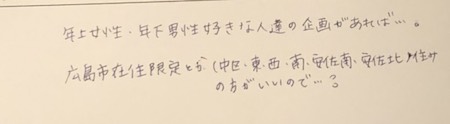 年上女性・年下男性好きな人達の企画があれば…。
広島市在住限定とか(中区・東・西・南・安佐南・安佐北)住み
の方がいいので…?